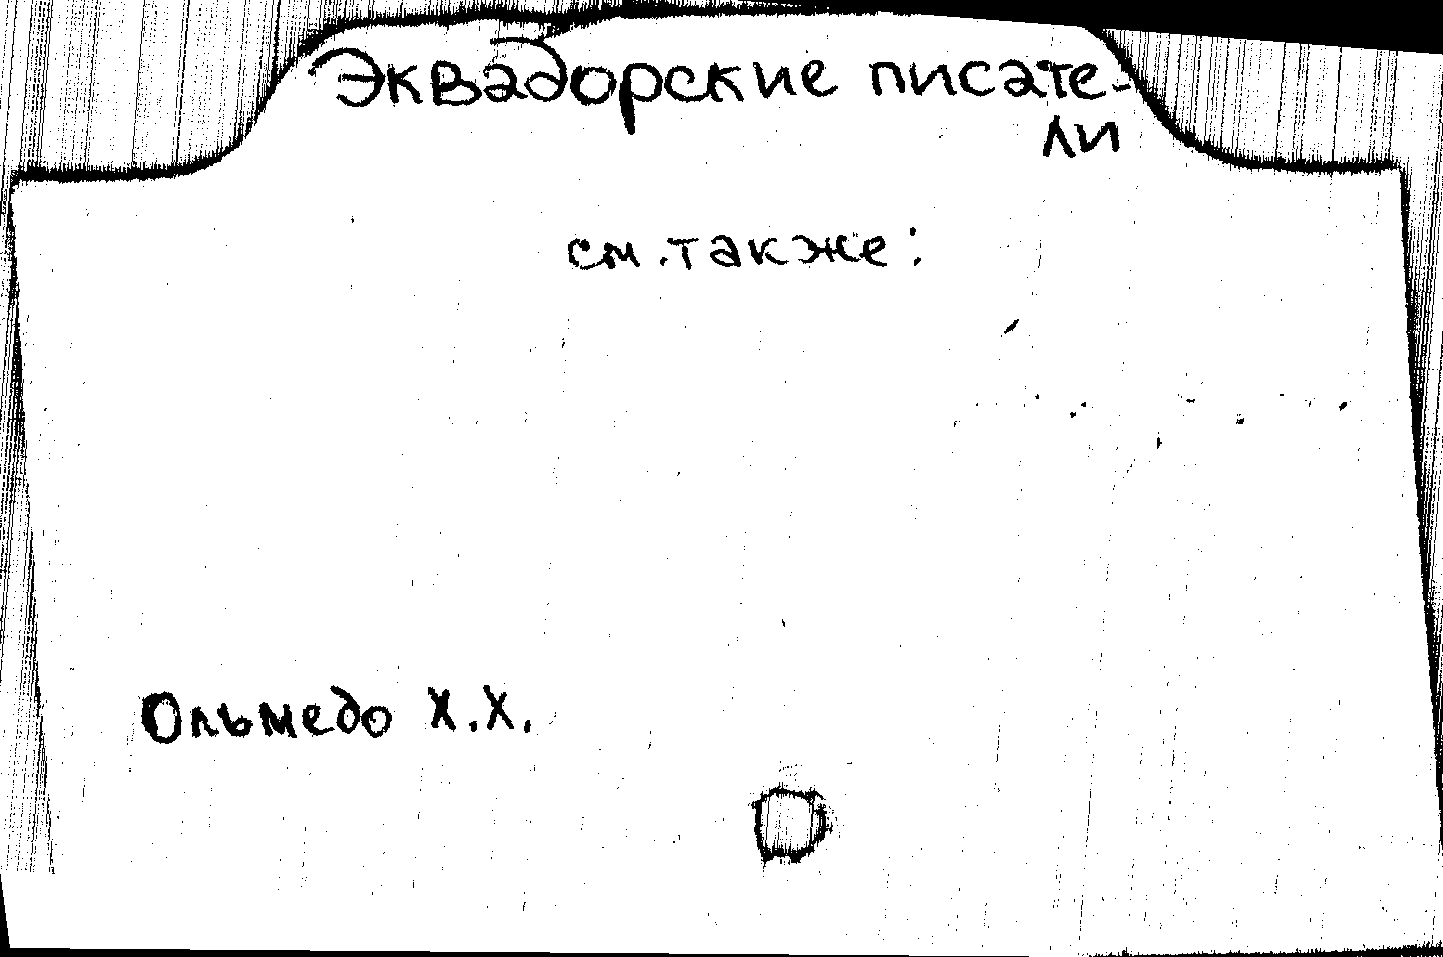 Эквадорские писате-
ли
см. также:
Ольмедо Х.Х.